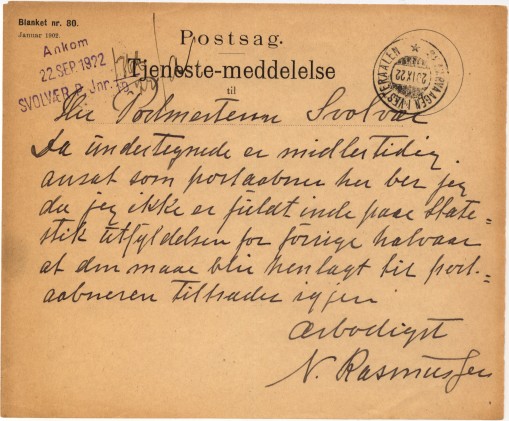 Blanket nr. 80.
Januar 1902.
Postsag.
Tjeneste-meddelelse
til
Ankom
22 SEP. 1922
SVOLVÆR P. Jnr.
VESTERAALEN
IX 22
Hr Postmesteren Svolvær
Da undertegnede er midlertidig
ansat som postaabner her ber jeg
da jeg ikke er fuldt inde paa State-
stik utfyldelsen for forrige halvaar
at den maa bli henlagt til post-
aabneren tiltræder igjen.
Ærbødigst
N. Rasmussen